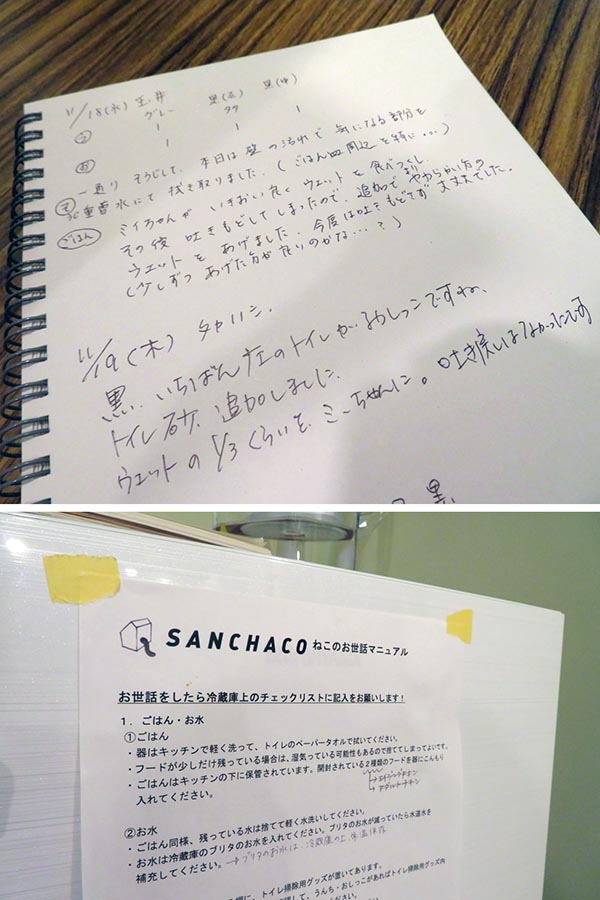 11/18(水) 玉井
グレー 黒(左) 黒(中)
㋒ 1 1
㋔ 1 1
㋞ 一通り そうじして、本日は 壁の汚れで 気になる部分を
重曹水にて 拭き取りました。(ごはん皿周辺を特に…)
ごはん ミイちゃんが いきおい良く ウェットを 食べつくし、
その後 吐きもどしてしまったので、追加で、やわらかい方の
ウェットを あげました。今度は吐きもどさず 大丈夫でした。
(少しずつ あげた方が良いのかな…?)
11/19(木)
黒、いちばん左のトイレが おしっこですね、
トイレ砂、追加しました
ウェットの 1/3 くらいを、ミーちゃんに。吐き戻しはなかったです
黒
SANCHACO ねこのお世話マニュアル
お世話をしたら冷蔵庫上のチェックリストに記入をお願いします!
1. ごはん・お水
①ごはん
・器はキッチンで軽く洗って、トイレのペーパータオルで拭いてください。
・フードが少しだけ残っている場合は、湿気っている可能性もあるので捨ててしまってよいです。
・ごはんはキッチンの下に保管されています。開封されている2種類のフードを器にこんもり
入れてください。
アダルトチキン
②お水
・ごはん同様、残っている水は捨てて軽く水洗いしてください。
・お水は冷蔵庫のブリタのお水を入れてください。ブリタのお水が減っていたら水道水を
補充してください。→ブリタのお水は、冷蔵庫の上、常温保存
に、トイレ掃除用グッズが置いてあります。
して、うんち・おしっこがあればトイレ掃除用グッズ内